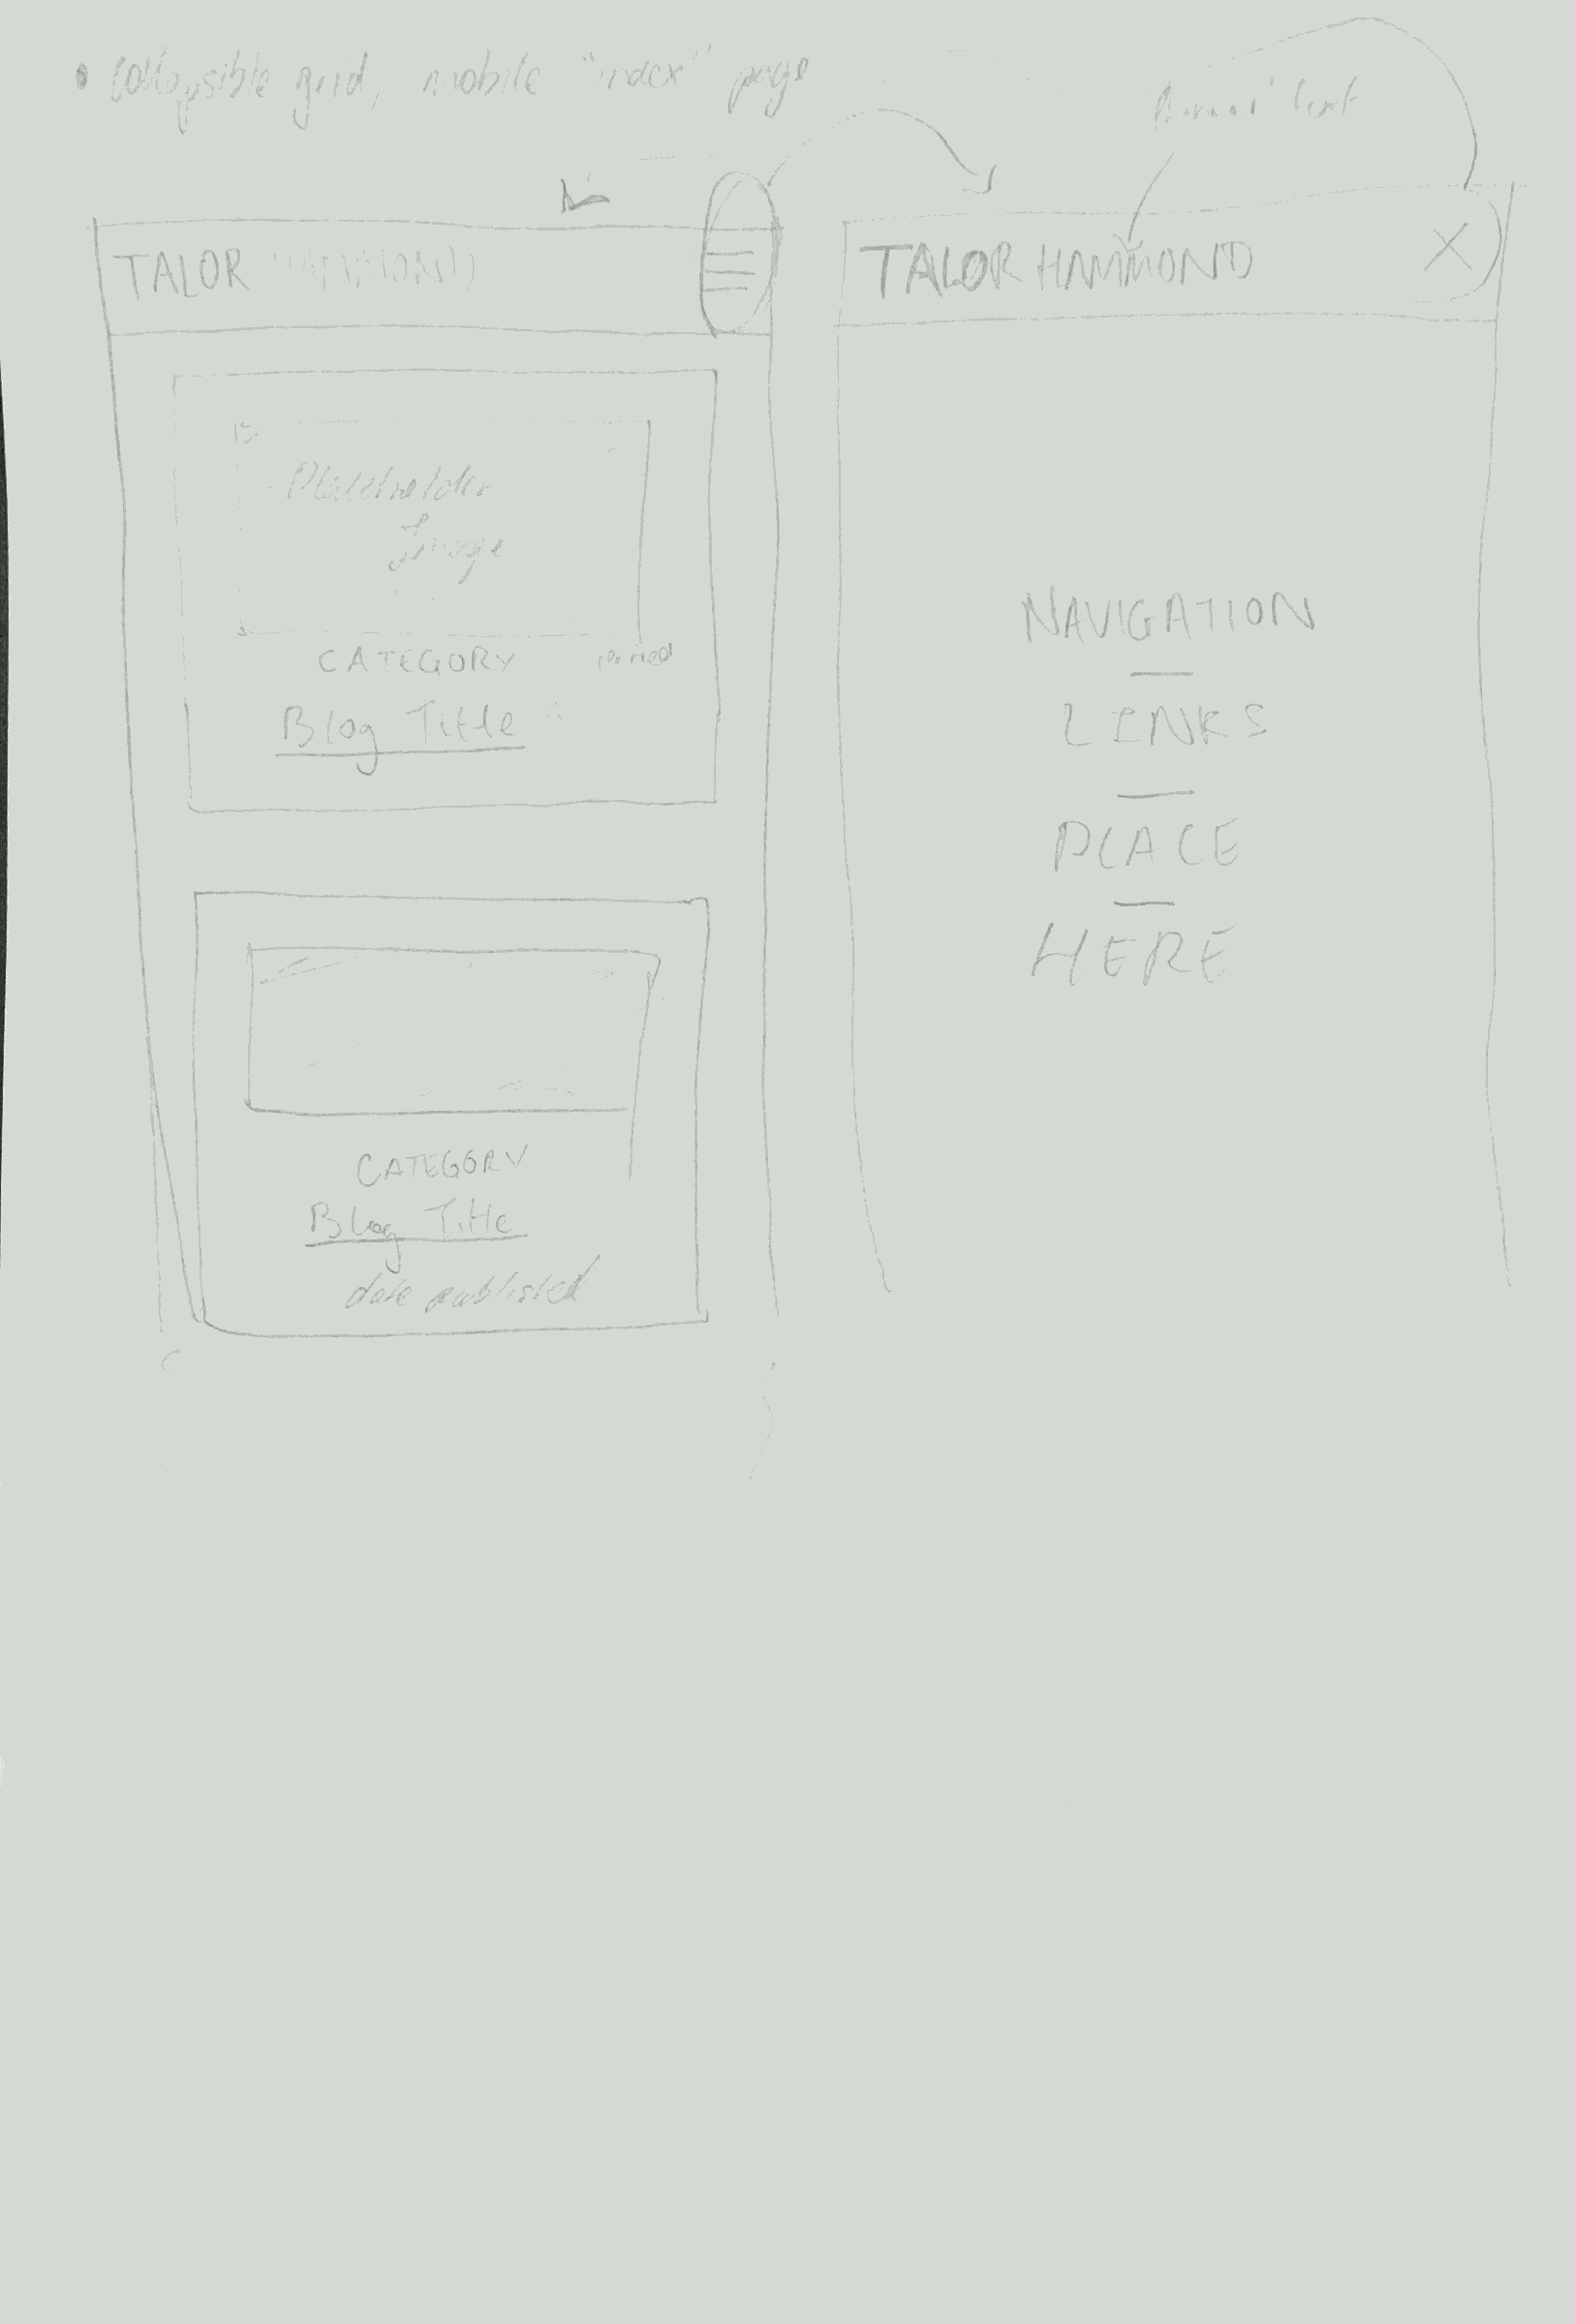 • Collapsible grid, mobile "index" page
text
TALOR HAMMOND
Placeholder
Image
CATEGORY
Blog Title
CATEGORY
Blog Title
date published
TALOR HAMMOND
X
NAVIGATION
—
LINKS
—
PLACE
—
HERE